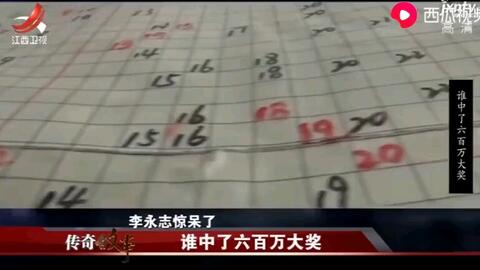 江西卫视
jxntv
西瓜视频
高清
14
20
15 16 18
18 20
22
谁中了六百万大奖
16 18
15 16 19 20
20
14 19
李永志惊呆了
传奇故事
谁中了六百万大奖